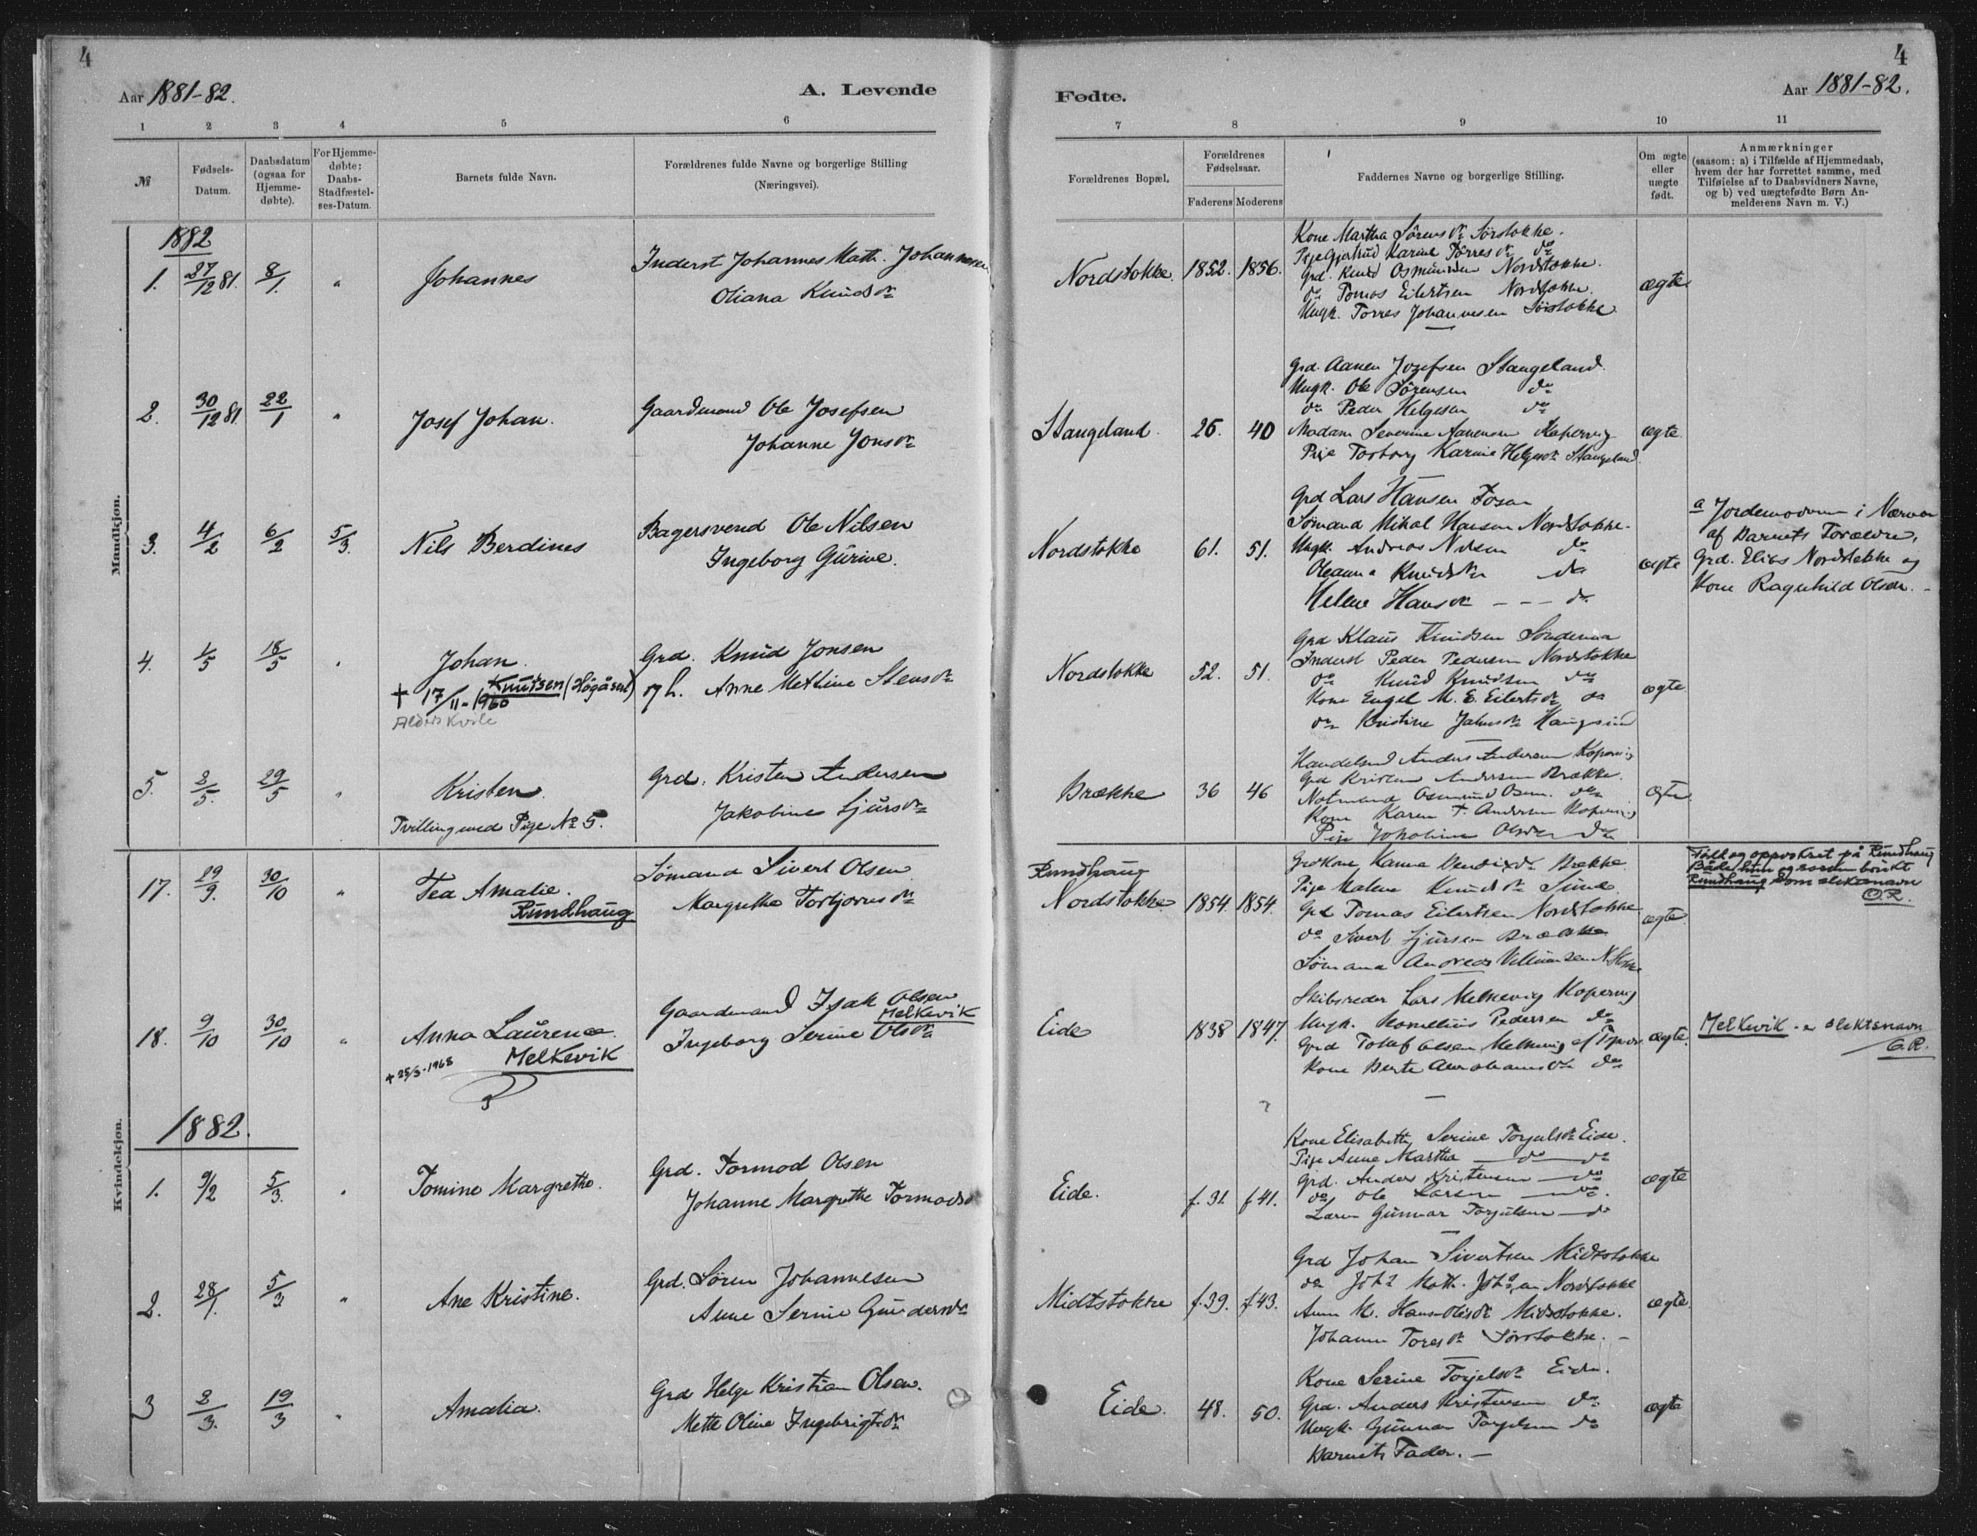 4
4
Aar 1881-82.
A. Levende
Fødte.
Aar 1881-82.
1 2 3 4 5 6
7 8 9 10 11
№
Fødsels-Datum.
Daabsdatum (ogsaa for Hjemme-døbte).
For Hjemme-døbte: Daabs-Stadfæstel-ses-Datum.
Barnets fulde Navn.
Forældrenes fulde Navne og borgerlige Stilling
(Næringsvei).
Forældrenes Bopæl.
Forældrenes Fødselsaar.
Faderens Moderens
Faddernes Navne og borgerlige Stilling.
Om ægte eller uægte født.
Anmærkninger
(saasom: a) i Tilfælde af Hjemmedaab,
hvem der har forrettet samme, med
Tilføielse af to Daabsvidners Navne,
og b) ved uægtefødte Børn An-
melderens Navn m. V.)
Mandkjøn.
1882
1. 27/12 81. 8/1 " Johannes
Inderst Johannes Math. Johannesen
Oliana Knudsdr
Nordstokke. 1852. 1856.
Kone Martha Sørensdr Sørstokke.
Pige Gjertrud Karine Torresdr do
Grd. Knud Osmundsen Nordstokke.
do Tomas Eilertsen Nordstokke.
Ungk. Torres Johannesen Sørstokke
ægte
2. 30/12 81. 22/1 " Josef Johan.
Gaardmand Ole Josefsen
Johanne Jonsdr
Stangeland. 26. 40
Grd. Aanen Jozefsen Stangeland.
Ungk. Ole Sørensen do
do Peder Helgesen do
Madam Severine Aanensen Kopervig
Pige Torborg Karine Helgesdr Stangeland.
ægte
3. 4/2 6/2 5/3. Nils Berdines
Bagersvend Ole Nilsen
Ingeborg Gurine.
Nordstokke 61. 51.
Grd Lars Hansen Fosen
Sømand Mikal Hansen Nordstokke.
Ungk. Andreas Nilsen do
Oleanna Knudsdr do
Helene Hansdr - - - do
ægte
a Jordemoderen i Nærvær
af Barnets Forældre,
Grd. Elias Nordstokke og
Kone Ragnhild Olsdr. -
4. 1/5 18/5 " Johan.
Knutsen (Høgåsen)
+ 17/11-1960
Grd. Knud Jonsen
og h. Anne Mettine Stensdr
Nordstokke 52. 51.
Grd Klaus Knudsen
Inderst Peder Pedersen Nordstokke
do Knud Knudsen do
Kone Engel M. E. Eilertsdr do
do Kristine
ægte
5. 2/5. 29/5 " Kristen.
Tvilling med Pige No 5.
Grd. Kristen Andersen
Jakobine Sjursdr
Brække 36 46
Handelsmd Anders Andersen Kopervig
Grd Kristen Andersen Brække.
Notmand Osmund Osm. do
Kone Karen T. Andersen Kopervig
Pige Jakobine Olsdr do
ægte.
Kvindekjøn.
17. 29/9. 30/10 " Tea Amalie.
Rundhaug
Sømand Sivert Olsen.
Margrethe Torbjørnsdr
Rundhaug
Nordstokke 1854. 1854.
Grdkone Hanna Brække.
Pige Malene Knudsdr Sund
Grd Tomas Eilertsen Nordstokke
do Sivert Sjursen Brække
Sømand Andreas Villumsen N. Stokke
ægte.
Født og oppvokset på Rundhaug
Både hun og brukt
Rundhaug som slektsnavn
O.R.
18. 9/10 30/10 " Anna Laurence
Melkevik
+ 25/3-1968
Gaardmand Isak Olsen
Melkevik
Ingeborg Serine Olsdr
Eide 1838 1847.
Skibsreder Lars Melkevig Kopervig
Ungk. Kornelius Pedersen do
Grd Tollef Olsen Melkevig af
Kone Berte Abrahamsdr do
ægte.
Melkevik - er slektsnavn
O.R.
1882.
1. 9/2 5/3. " Tomine Margrethe.
Grd. Tormod Olsen
Johanne Margrethe Tormodsd
Eide. f. 31. f 41.
Kone Elisabeth Serine Torjulsdr Eide.
Pige Anne Martha do do
Grd. Anders Kristensen do
do Ole Larsen do.
Lærer Gunnar Torjulsen do
ægte
2. 28/1. 5/3 " Ane Kristine.
Grd. Søren Johannesen
Anne Serine Gundersdr
Midtstokke f. 39. f 43.
Grd Johan Sivertsen Midtstokke
do Joh. Math. Nordstokke
Anne M. Hans Olisdr Midtstokke.
Johanne Toresdr Sørstokke. -
ægte.
3 2/3. 19/3 " Amalia.
Grd Helge Kristian Olsen.
Mette Oline Ingebrigtsdr
Eide. 48. 50.
Kone Serine Torjelsdr Eide.
Grd. Anders Kristensen do
Ungk. Gunnar Torjelsen do
Barnets Fader. -
ægte